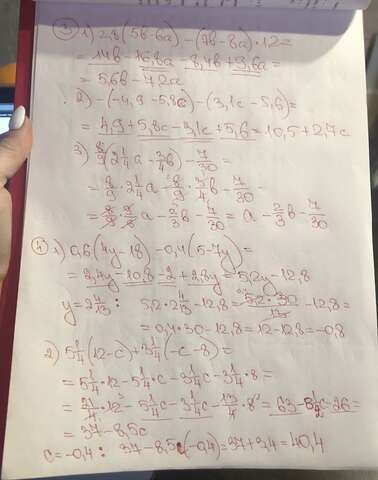 ③ 1) 2,8(5b-6a)-(7b-8a)·1,2=
= 14b-16,8a-8,4b+9,6a=
= 5,6b-7,2a
2) -(-4,9-5,8c)-(3,1c-5,6)=
= 4,9+5,8c-3,1c+5,6=10,5+2,7c
3) 8/9(2 1/4 a-3/4 b)-7/30=
= 8/9·2 1/4 a-8/9·3/4 b-7/30=
= 8/9·9/4 a-2/3 b-7/30= a-2/3 b-7/30
④ 1) 0,6(4y-18)-0,4(5-7y)=
= 2,4y-10,8-2+2,8y=5,2y-12,8
y=2 4/13: 5,2·2 4/13-12,8=5,2·30/13-12,8=
= 0,4·30-12,8=12-12,8=-0,8
2) 5 1/4(12-c)+3 1/4(-c-8)=
= 5 1/4·12-5 1/4c-3 1/4c-3 1/4·8=
= 21/4·12-5 1/4c-3 1/4c-13/4·8=63-8 1/2c-26=
= 37-8,5c
c=-0,4: 37-8,5·(-0,4)=37+3,4=40,4